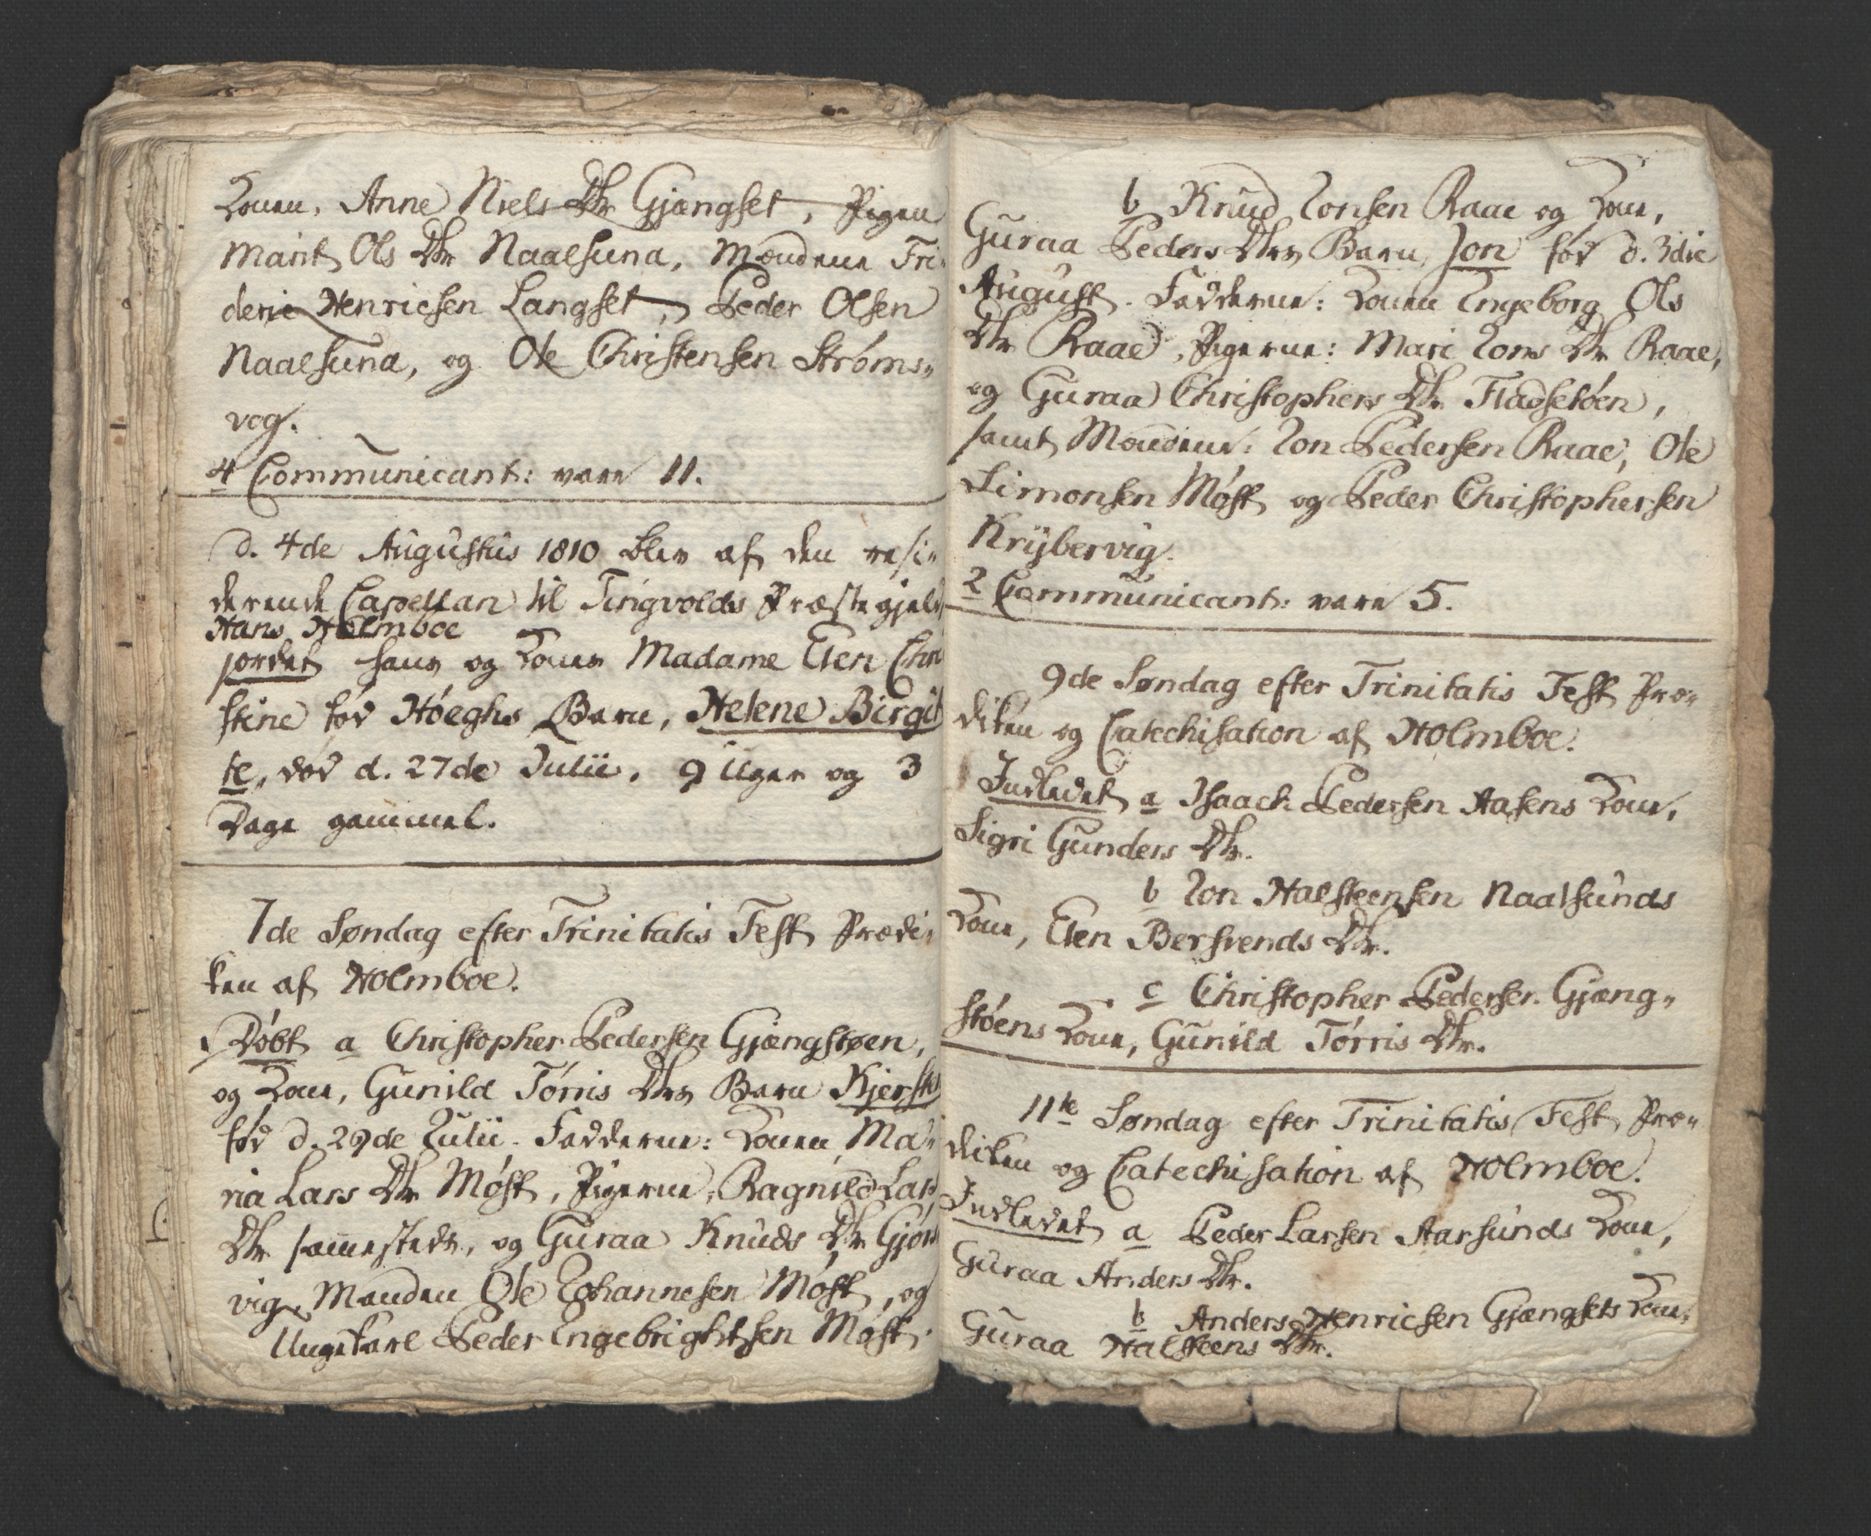 Konen, Anne Niels Dtr Gjængset, Pigen
Marit Ols Dtr Naalsund, Mændene Fri-
deric Henricsen Langset, Peder Olsen
Naalsund, og Ole Christensen Strøms-
vog.
4 Communicant: vare 11.
d. 4de Augustus 1810 blev af den resi-
derende Capellan til Tingvolds Præstegjeld
Hans Holmboe
jordet hans og Kones Madame Elen Chri
stine fød Høeghs Barn, Helene Birgit
te, død d. 27de Julii, 9 Uger og 3
Dage gammel.
7de Søndag efter Trinitatis Fest Prædi-
ken af Holmboe.
Døbt a Christopher Pedersen Gjængstøen,
og Kone, Gunild Tørris Dtrs Barn Kjersti
fød d. 29de Julii. Fadderne: Konen Ma-
ria Lars Dtr Møst, Pigerne, Ragnild Lars
Dtr sammesteds, og Guraa Knuds Dtr Gjørs
vig, Manden Ole Johannesen Møst, og
Ungkarl Peder Engebrightsen Møst.
b Knud Jonsen Raae og Kone,
Guraa Peders Dtrs Barn, Jon fød d. 3die
August. Fadderne: Konen Ingeborg Ols
Dtr Raae, Pigerne: Mari Jons Dtr Raae,
og Guraa Christophers Dtr Fladsetøen,
samt Mændene: Jon Pedersen Raae, Ole
Simonsen Møst og Peder Christophersen
Krÿbervig.
2 Communicant: vare 5.
9de Søndag efter Trinitatis Fest Præ-
diken og Catechisation af Holmboe.
Indledet a Isaach Pedersen Aasens Kone,
Sigri Gunders Dtr.
b Jon Halsteensen Naalsunds
Kone, Elen Bersvends Dtr.
c Christopher Pedersen Gjæng-
støens Kone, Gunild Tørris Dtr.
11te Søndag efter Trinitatis Fest Præ-
diken og Catechisation af Holmboe.
Indledet a Peder Larsen Aarsunds Kone,
Guraa Anders Dtr.
b Anders Henricsen Gjængsets Kone,
Guraa Halsteens Dtr.